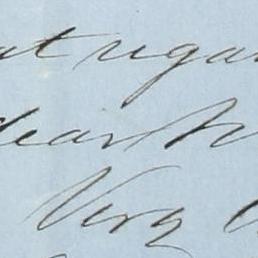 at regar
dear W
Very